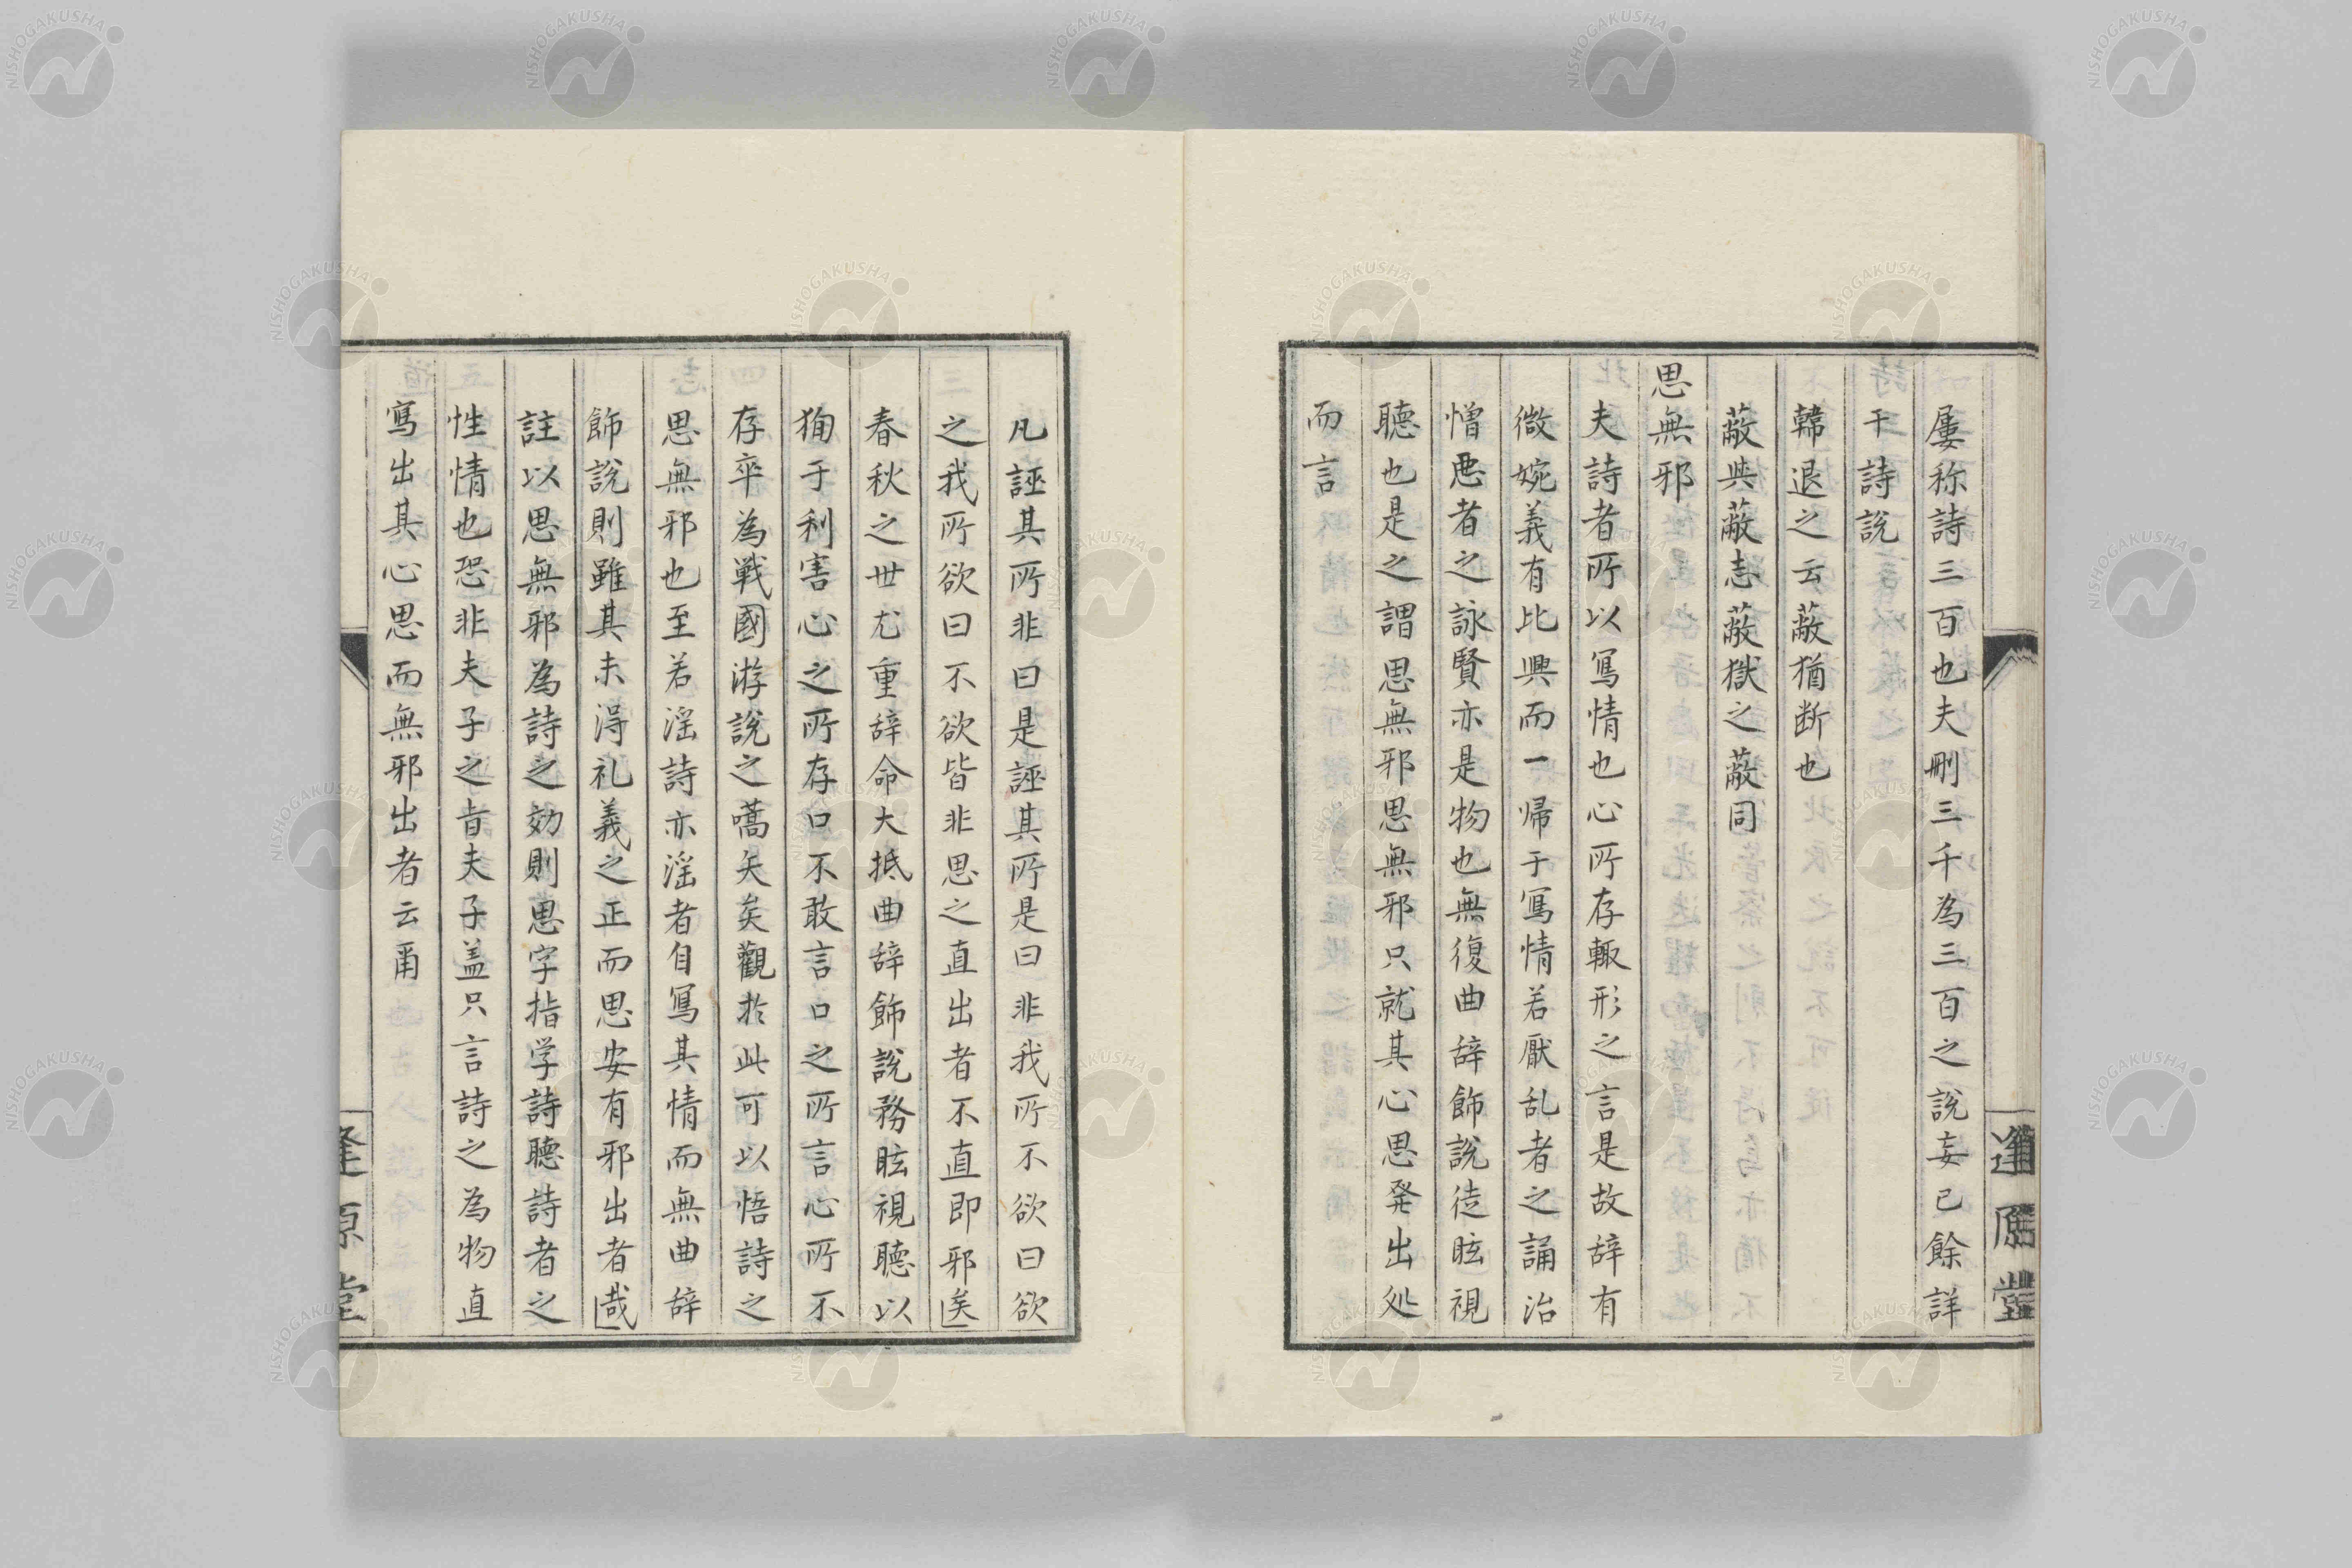 屢称詩三百也夫刪三千為三百之說妄已餘詳
于詩說
韓退之云蔽猶断也
蔽與蔽志蔽獄之蔽同
思無邪
夫詩者所以寫情也心所存輙形之言是故辞有
微婉義有比興而一帰于寫情若厭乱者之誦治
憎悪者之詠賢亦是物也無復曲辞飾說徒眩視
聴也是之謂思無邪思無邪只就其心思発出処
而言
逢原堂
凡誣其所非曰是誣其所是曰非我所不欲曰欲
之我所欲曰不欲皆非思之直出者不直即邪矣
春秋之世尤重辞命大抵曲辞飾說務眩視聴以
狥于利害心之所存口不敢言口之所言心所不
存卒為戦國游說之嚆矢矣觀於此可以悟詩之
思無邪也至若淫詩亦淫者自寫其情而無曲辞
飾說則雖其未淂礼義之正而思安有邪出者哉
註以思無邪為詩之効則思字指学詩聴詩者之
性情也恐非夫子之旨夫子盖只言詩之為物直
寫出其心思而無邪出者云甭
逢原堂
NISHOGAKUSHA